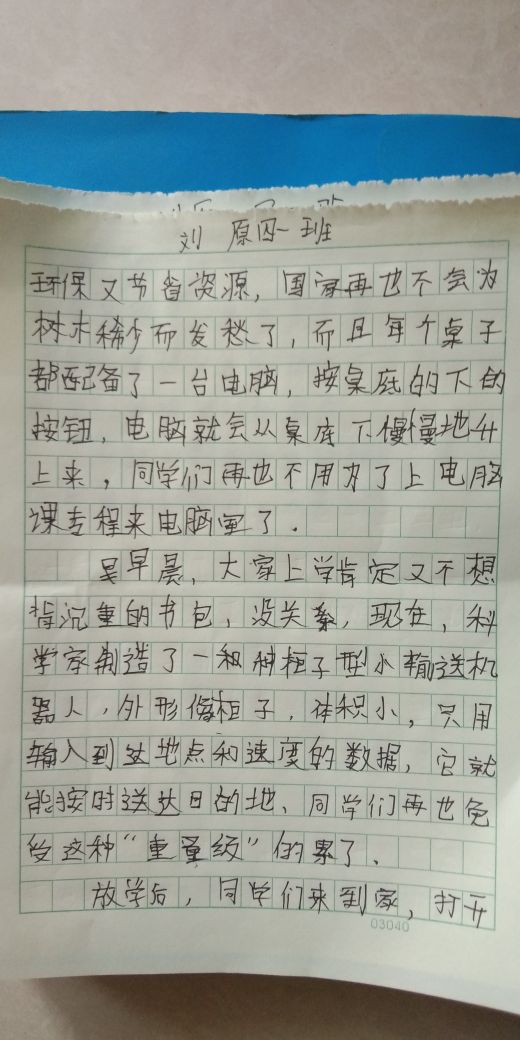 刘 原四一班
环保又节省资源，国家再也不会为
树木稀少而发愁了，而且每个桌子
都配备了一台电脑，按桌底的下的
按钮，电脑就会从桌底下慢慢地升
上来，同学们再也不用为了上电脑
课专程来电脑室了．
早晨，大家上学肯定又不想
背沉重的书包，没关系，现在，科
学家制造了一种柜子型小输送机
器人，外形像柜子，体积小，只用
输入到达地点和速度的数据，它就
能按时送达目的地、同学们再也免
受这种“重量级”的累了．
放学后，同学们来到家，打开
03040